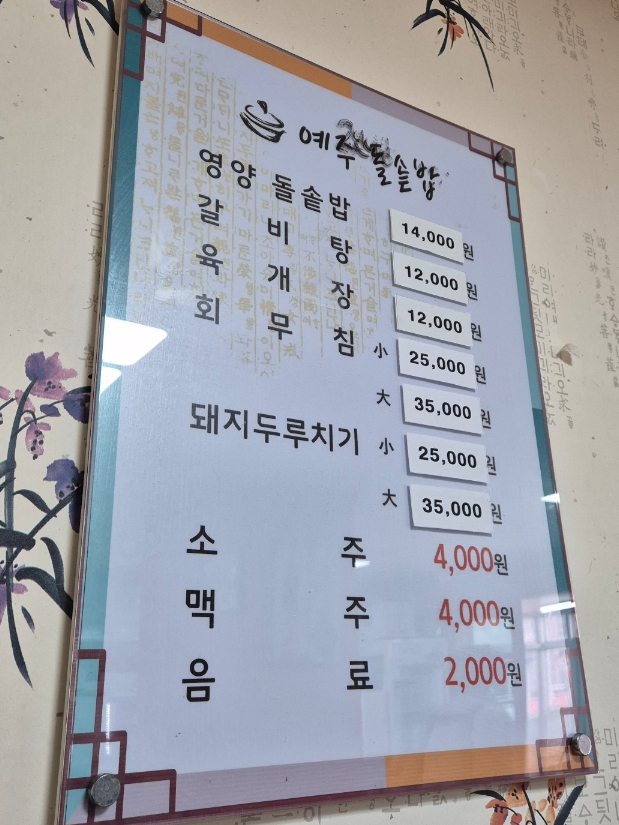 예주 돌솥밥
영양 돌솥밥 14,000원
갈비탕 12,000원
육개장 12,000원
회무침 小 25,000원
大 35,000원
돼지두루치기 小 25,000원
大 35,000원
소주 4,000원
맥주 4,000원
음료 2,000원